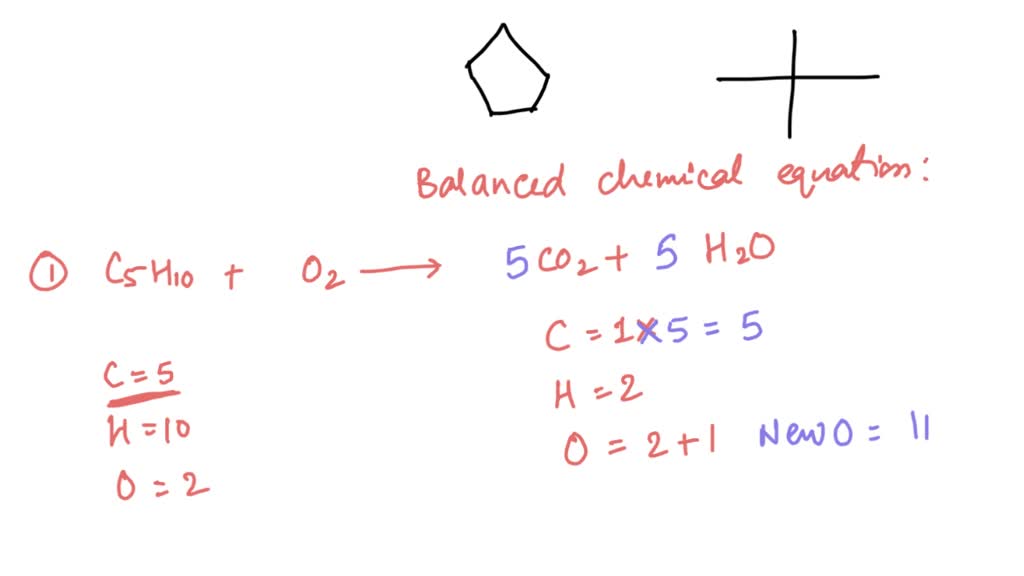 Balanced chemical equation:
① C5H10 + O2 → 5 CO2 + 5 H2O
C = 1 × 5 = 5
C = 5
H = 2
H = 10
O = 2 + 1 New O = 11
O = 2